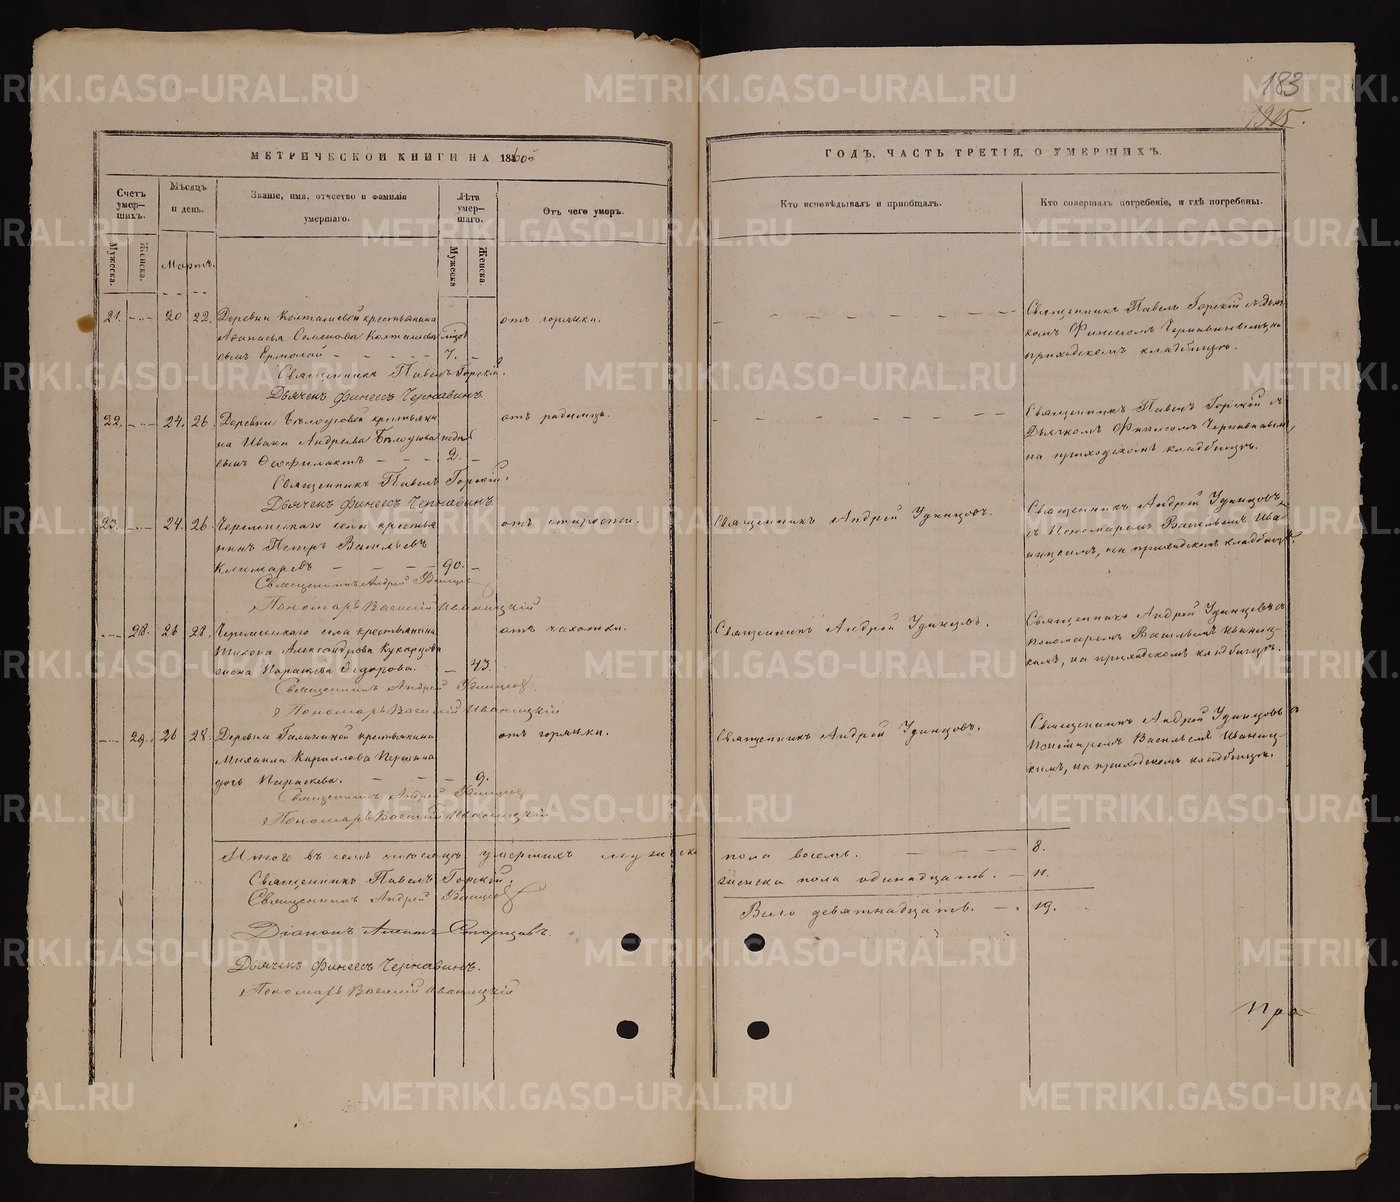 183
1915.
МЕТРИЧЕСКОЙ КНИГИ НА 1860й
ГОДЪ, ЧАСТЬ ТРЕТІЯ, О УМЕРШИХЪ.
Счетъ умер-шихъ.
Мѣсяцъ и день.
Званіе, имя, отчество и фамилія умершаго.
Лѣта умер-шаго.
Отъ чего умеръ.
Кто исповѣдывалъ и пріобщалъ.
Кто совершалъ погребеніе, и гдѣ погребены.
Мужеска.
Женска.
Мартъ.
Мужеска
Женска.
21. 20 22. Деревни крестьянина отъ горячки. Священникъ Павелъ Горскій съ Дьяч-
Аѳанасья Семенова комъ Финеесомъ Чернавинымъ, на
сынъ Ермолай 7. приходскомъ кладбищѣ.
Священникъ Павелъ Горскій.
Дьячекъ Финеесъ Чернавинъ
22. 24. 26. Деревни Бѣлоусовой крестьяни отъ родимца. Священникъ Павелъ Горскій съ
на Ивана Андреева Бѣлоусова недѣл Дьячкомъ Финеесомъ Чернавинымъ,
сынъ Ѳеофилактъ 2. на приходскомъ кладбищѣ.
Священникъ Павелъ Горскій.
Дьячекъ Финеесъ Чернавинъ
23. 24. 26. Черемисскаго села крестья отъ старости. Священникъ Андрей Удинцовъ. Священникъ Андрей Удинцовъ
нинъ Петръ Васильевъ съ Пономаремъ Васильемъ Ива
90. ницкимъ, на приходскомъ кладбищѣ.
Священникъ Андрей Удинцовъ
Пономарь Василій Иваницкій
28. 26 28. Черемисскаго села крестьянина отъ чахотки. Священникъ Андрей Удинцовъ. Священникъ Андрей Удинцовъ съ
Тихона Александрова Кукарцева пономаремъ Васильемъ Иваниц-
жена Параскева Ѳедорова. 43. кимъ, на приходскомъ кладбищѣ.
Священникъ Андрей Удинцовъ
Пономарь Василій Иваницкій
29. 26 28. Деревни крестьянина отъ горячки. Священникъ Андрей Удинцовъ. Священникъ Андрей Удинцовъ съ
Михаила Кириллова Першина Пономаремъ Васильемъ Иваниц-
дочь Параскева. 9. кимъ, на приходскомъ кладбищѣ.
Священникъ Андрей Удинцовъ
Пономарь Василій Иваницкій
Итого въ семъ мѣсяцѣ умершихъ мужеска пола восемь. 8.
Священникъ Павелъ Горскій. женска пола одинадцать. 11.
Священникъ Андрей Удинцовъ
Всего девятнадцать. 19.
Діаконъ Старцовъ.
Дьячекъ Финеесъ Чернавинъ.
Пономарь Василій Иваницкій
METRIKI.GASO-URAL.RU